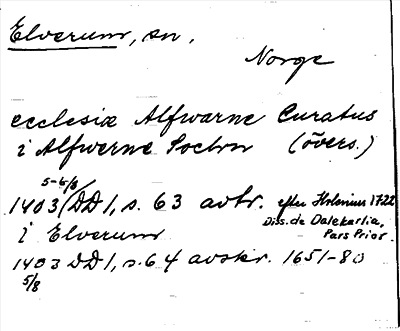 Elverum, sn.
Norge
ecclesiæ Alfwarne Curatus
i Alfwerne Sochn (övers.)
5-6/8
1403/DD1, s. 63 avtr. efter Holenius 1722
Diss. de Dalekarlia,
Pars Prior.
i Elverum
1403 DD1, s. 64 avskr. 1651-80
5/8